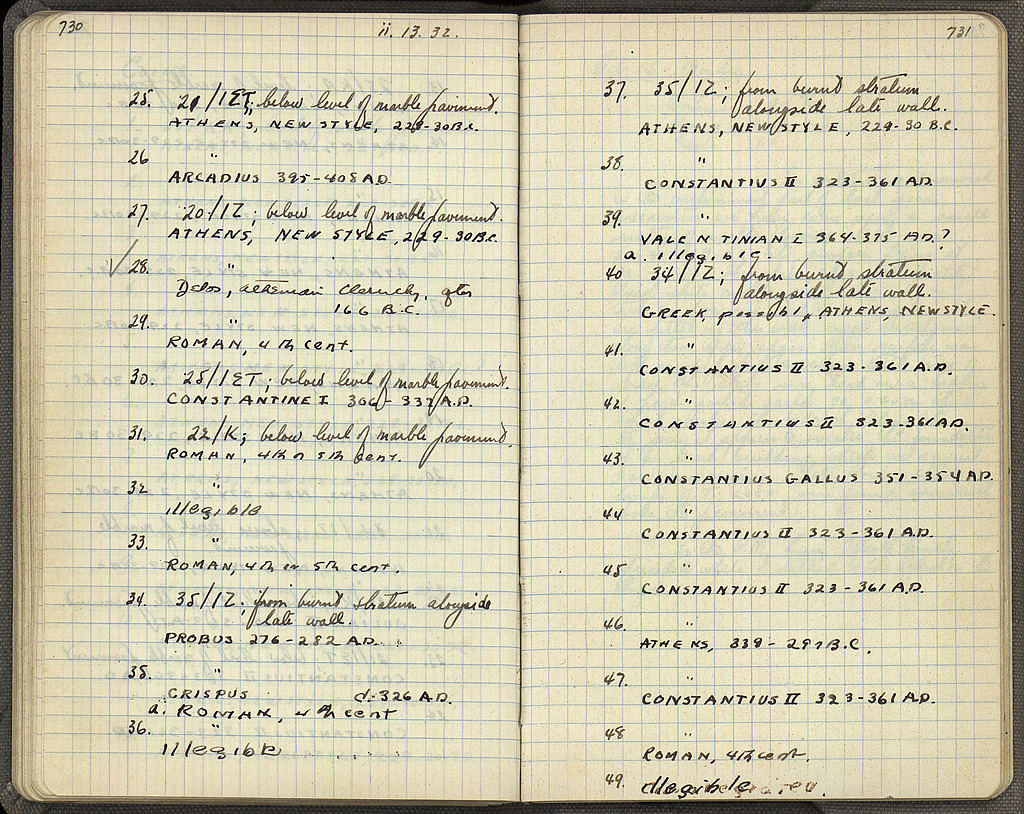 730
ii. 13. 32.
25. 20/ΙΣΤ; below level of marble pavement.
ATHENS, NEW STYLE, 229-30 B.C.
26 "
ARCADIUS 395-408 A.D.
27. 20/ΙΖ; below level of marble pavement.
ATHENS, NEW STYLE, 229-30 B.C.
✓ 28. "
Delos, Athenian Cleruchy, after
166 B.C.
29. "
ROMAN, 4th cent.
30. 25/ΙΣΤ; below level of marble pavement.
CONSTANTINE I 306-337 A.D.
31. 22/K; below level of marble pavement.
ROMAN, 4th or 5th cent.
32 "
illegible
33. "
ROMAN, 4th or 5th cent.
34. 35/ΙΖ; from burnt stratum alongside
late wall.
PROBUS 276-282 A.D.
35. "
CRISPUS d. 326 A.D.
a. ROMAN, 4th cent
36. "
Illegible
731
37. 35/ΙΖ; from burnt stratum
alongside late wall.
ATHENS, NEW STYLE, 229-30 B.C.
38. "
CONSTANTIUS II 323-361 A.D.
39. "
VALENTINIAN I 364-375 A.D.?
a. illegible.
40 34/ΙΖ; from burnt stratum
alongside late wall.
GREEK, possibly ATHENS, NEW STYLE.
41. "
CONSTANTIUS II 323-361 A.D.
42. "
CONSTANTIUS II 323-361 A.D.
43. "
CONSTANTIUS GALLUS 351-354 A.D.
44 "
CONSTANTIUS II 323-361 A.D.
45 "
CONSTANTIUS II 323-361 A.D.
46. "
ATHENS, 339-297 B.C.
47. "
CONSTANTIUS II 323-361 A.D.
48 "
ROMAN, 4th cent.
49. illegible